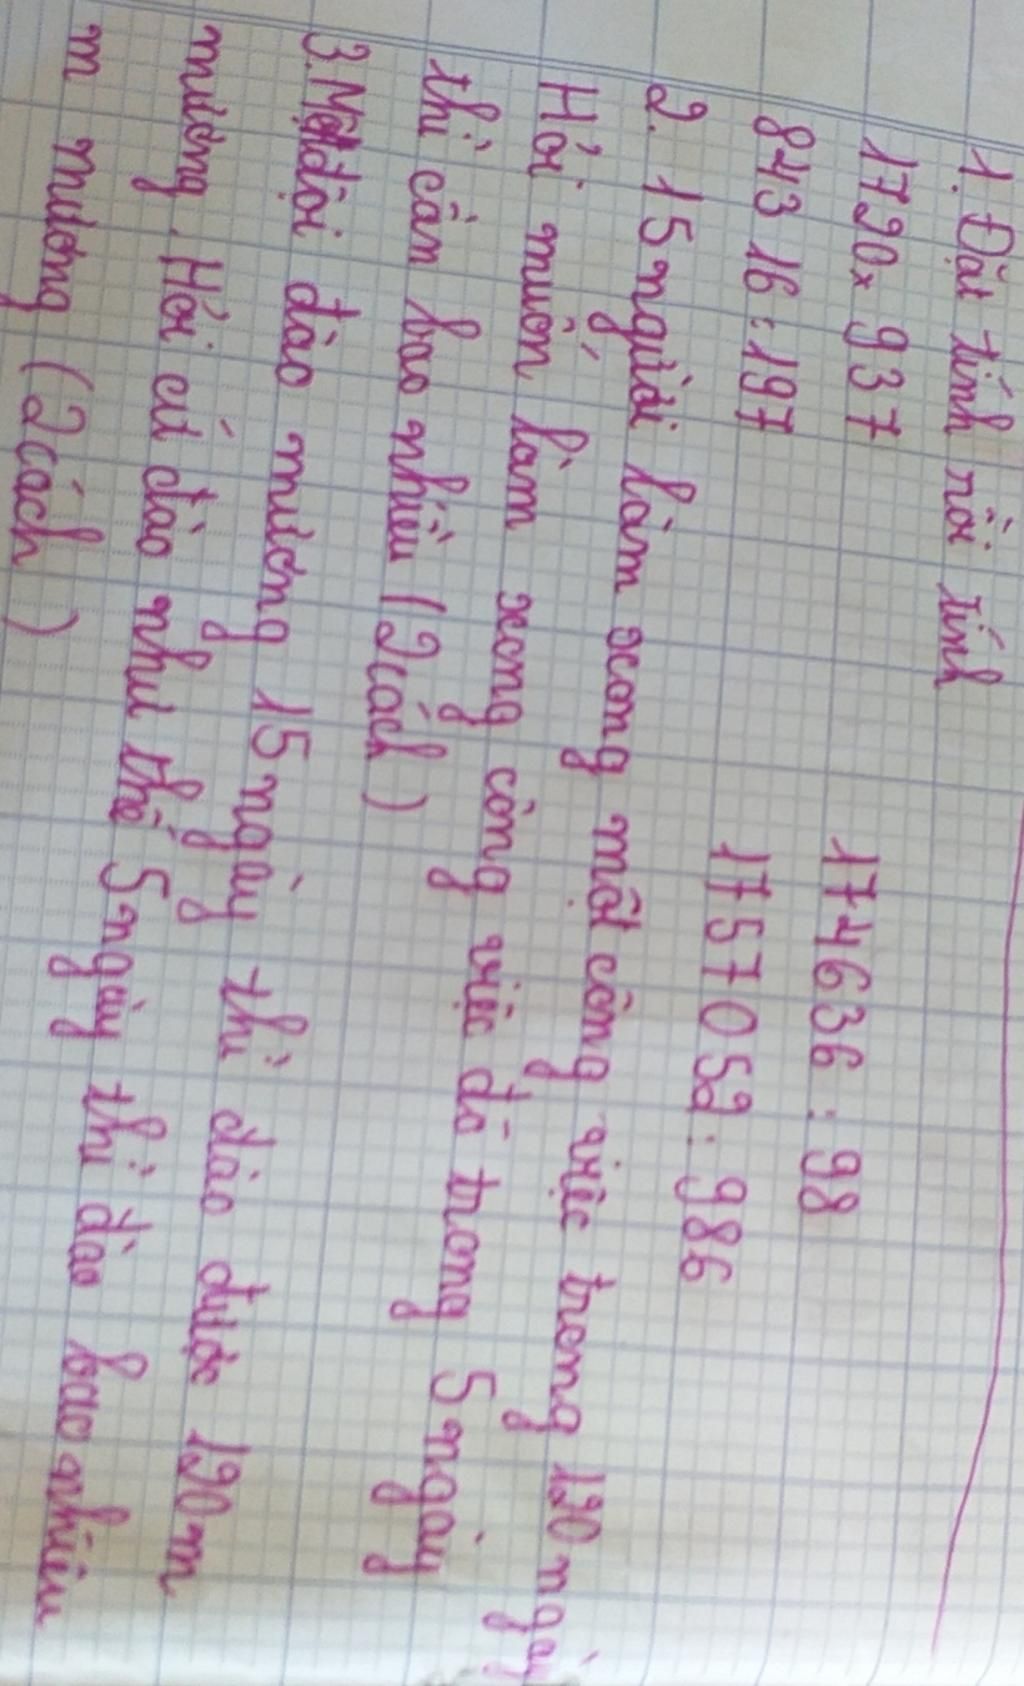 1. Đặt tính rồi tính
1720 x 937 174636 : 98
843 16 : 197 1757052 : 986
2. 15 người làm xong một công việc trong 120 ngày
Hỏi muốn làm xong công việc đó trong 5 ngày
thì cần bao nhiêu (2 cách)
3. Một đội đào mương 15 ngày thì đào được 120 m
mương. Hỏi cứ đào như thế 5 ngày thì đào bao nhiêu
m mương (2 cách)